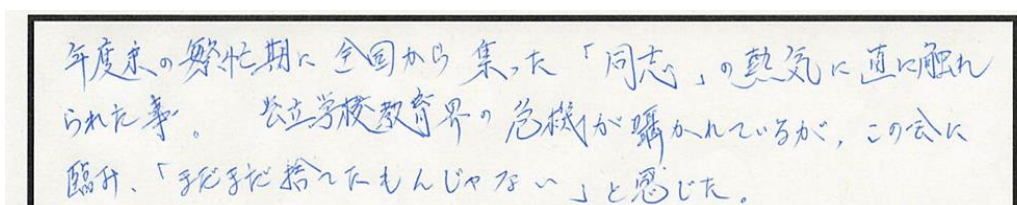 年度末の繁忙期に全国から集った「同志」の熱気に直に触れ
られた事。 公立学校教育界の危機が囁かれているが、この会に
臨み、「まだまだ捨てたもんじゃない」と感じた。